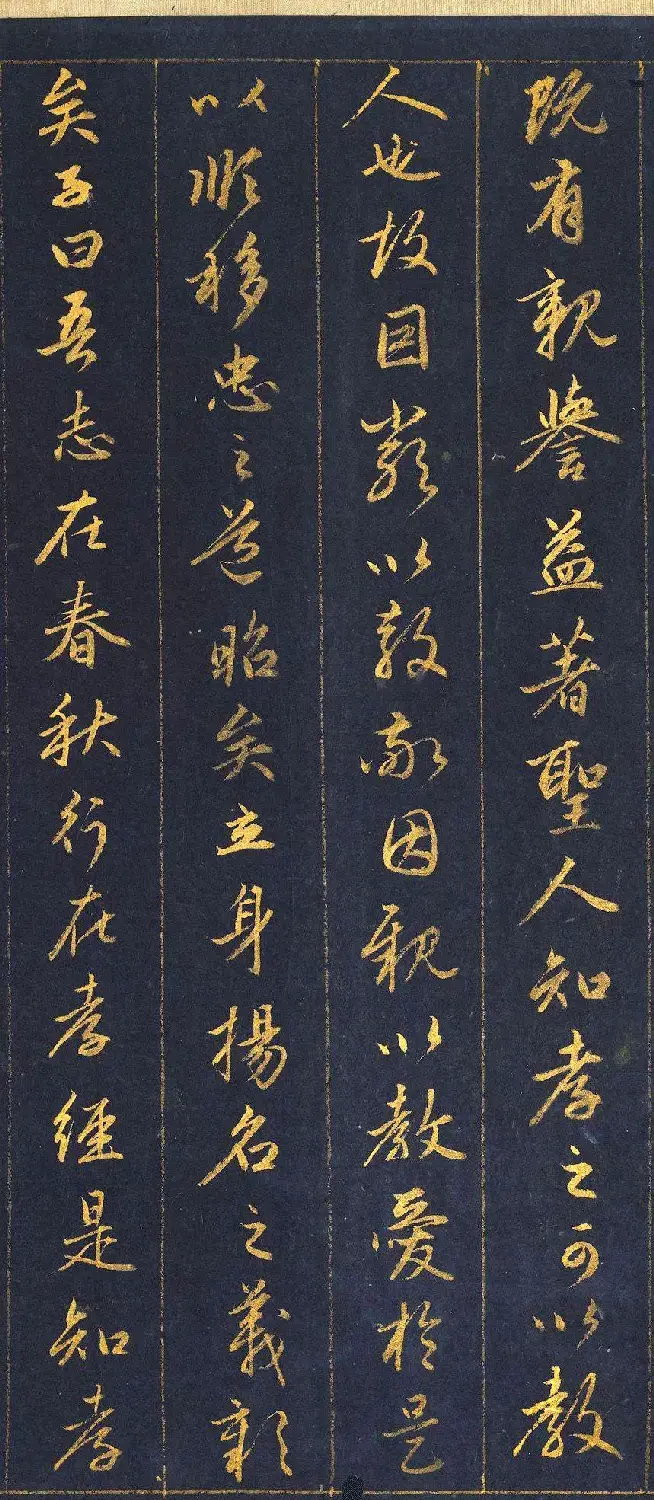 既有親譽益著聖人知孝之可以教
人也故因嚴以教敬因親以教愛於是
以順移忠之道昭矣立身揚名之義彰
矣子曰吾志在春秋行在孝經是知孝